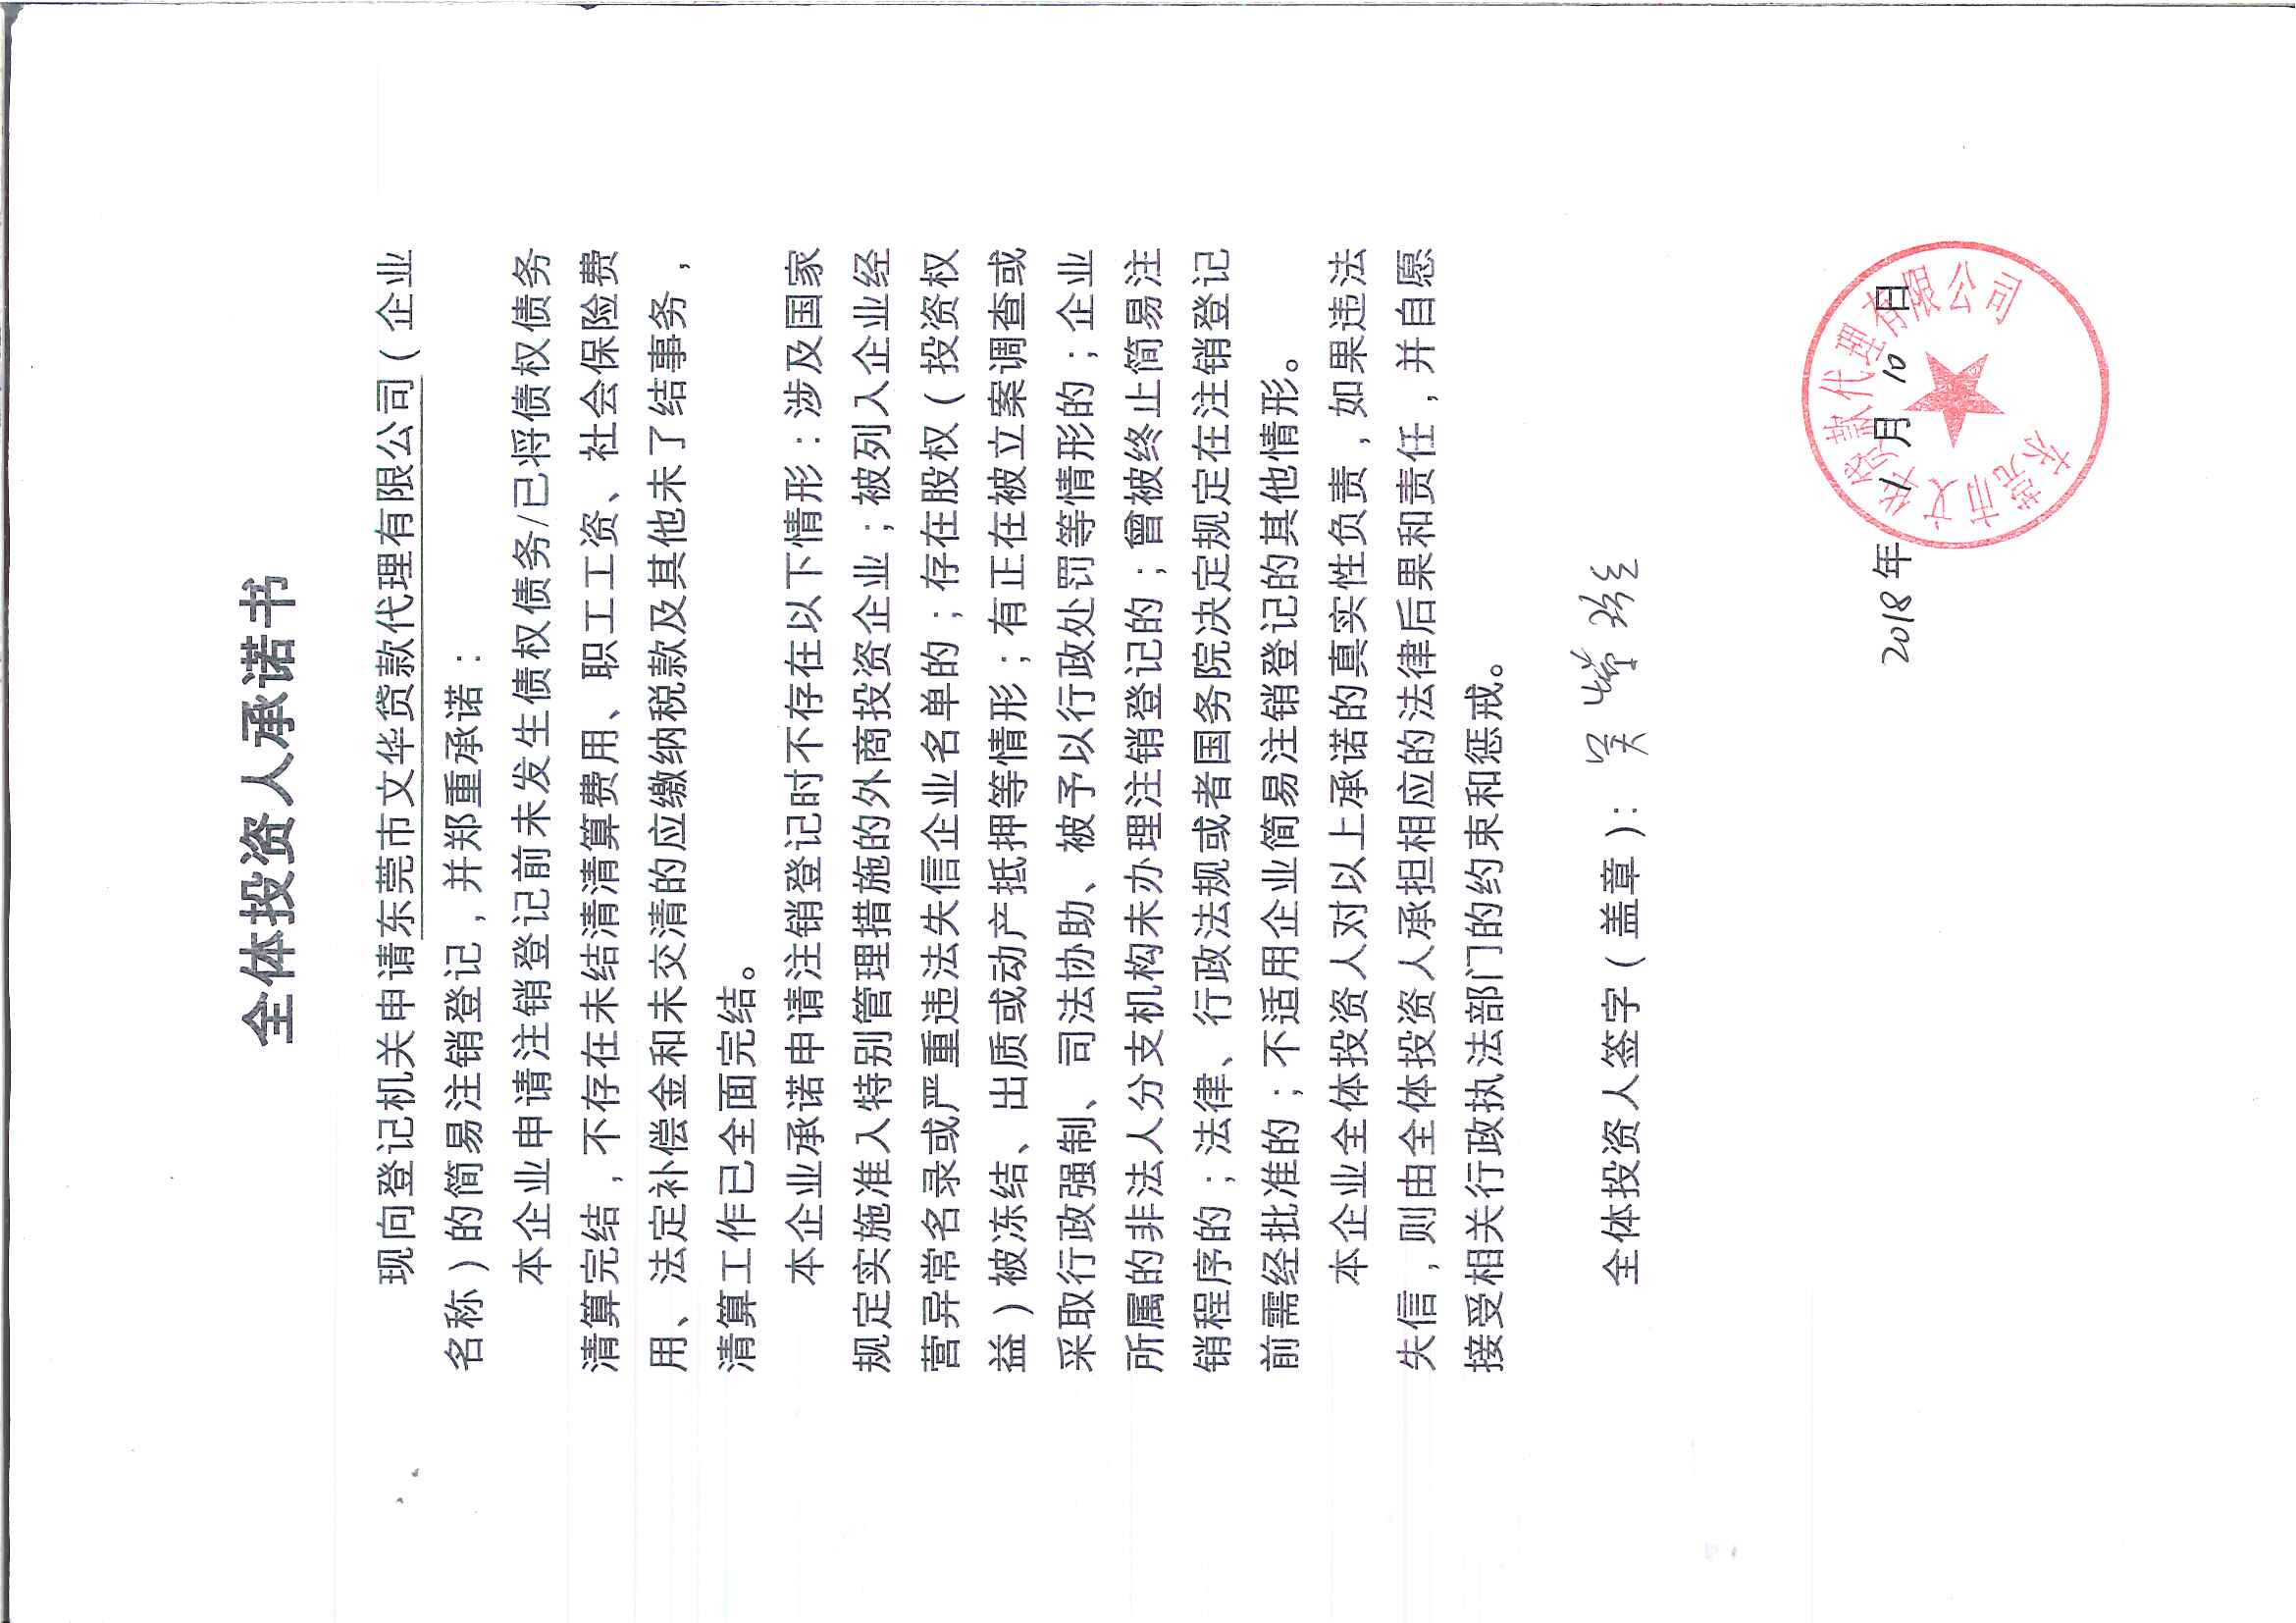 全体投资人承诺书
现向登记机关申请东莞市文华贷款代理有限公司（企业
名称）的简易注销登记，并郑重承诺：
本企业申请注销登记前未发生债权债务/已将债权债务
清算完结，不存在未结清清算费用、职工工资、社会保险费
用、法定补偿金和未交清的应缴纳税款及其他未了结事务，
清算工作已全面完结。
本企业承诺申请注销登记时不存在以下情形：涉及国家
规定实施准入特别管理措施的外商投资企业；被列入企业经
营异常名录或严重违法失信企业名单的；存在股权（投资权
益）被冻结、出质或动产抵押等情形；有正在被立案调查或
采取行政强制、司法协助、被予以行政处罚等情形的；企业
所属的非法人分支机构未办理注销登记的；曾被终止简易注
销程序的；法律、行政法规或者国务院决定规定在注销登记
前需经批准的；不适用企业简易注销登记的其他情形。
本企业全体投资人对以上承诺的真实性负责，如果违法
失信，则由全体投资人承担相应的法律后果和责任，并自愿
接受相关行政执法部门的约束和惩戒。
全体投资人签字（盖章）：吴
2018年11月10日
东莞市文华贷款代理有限公司